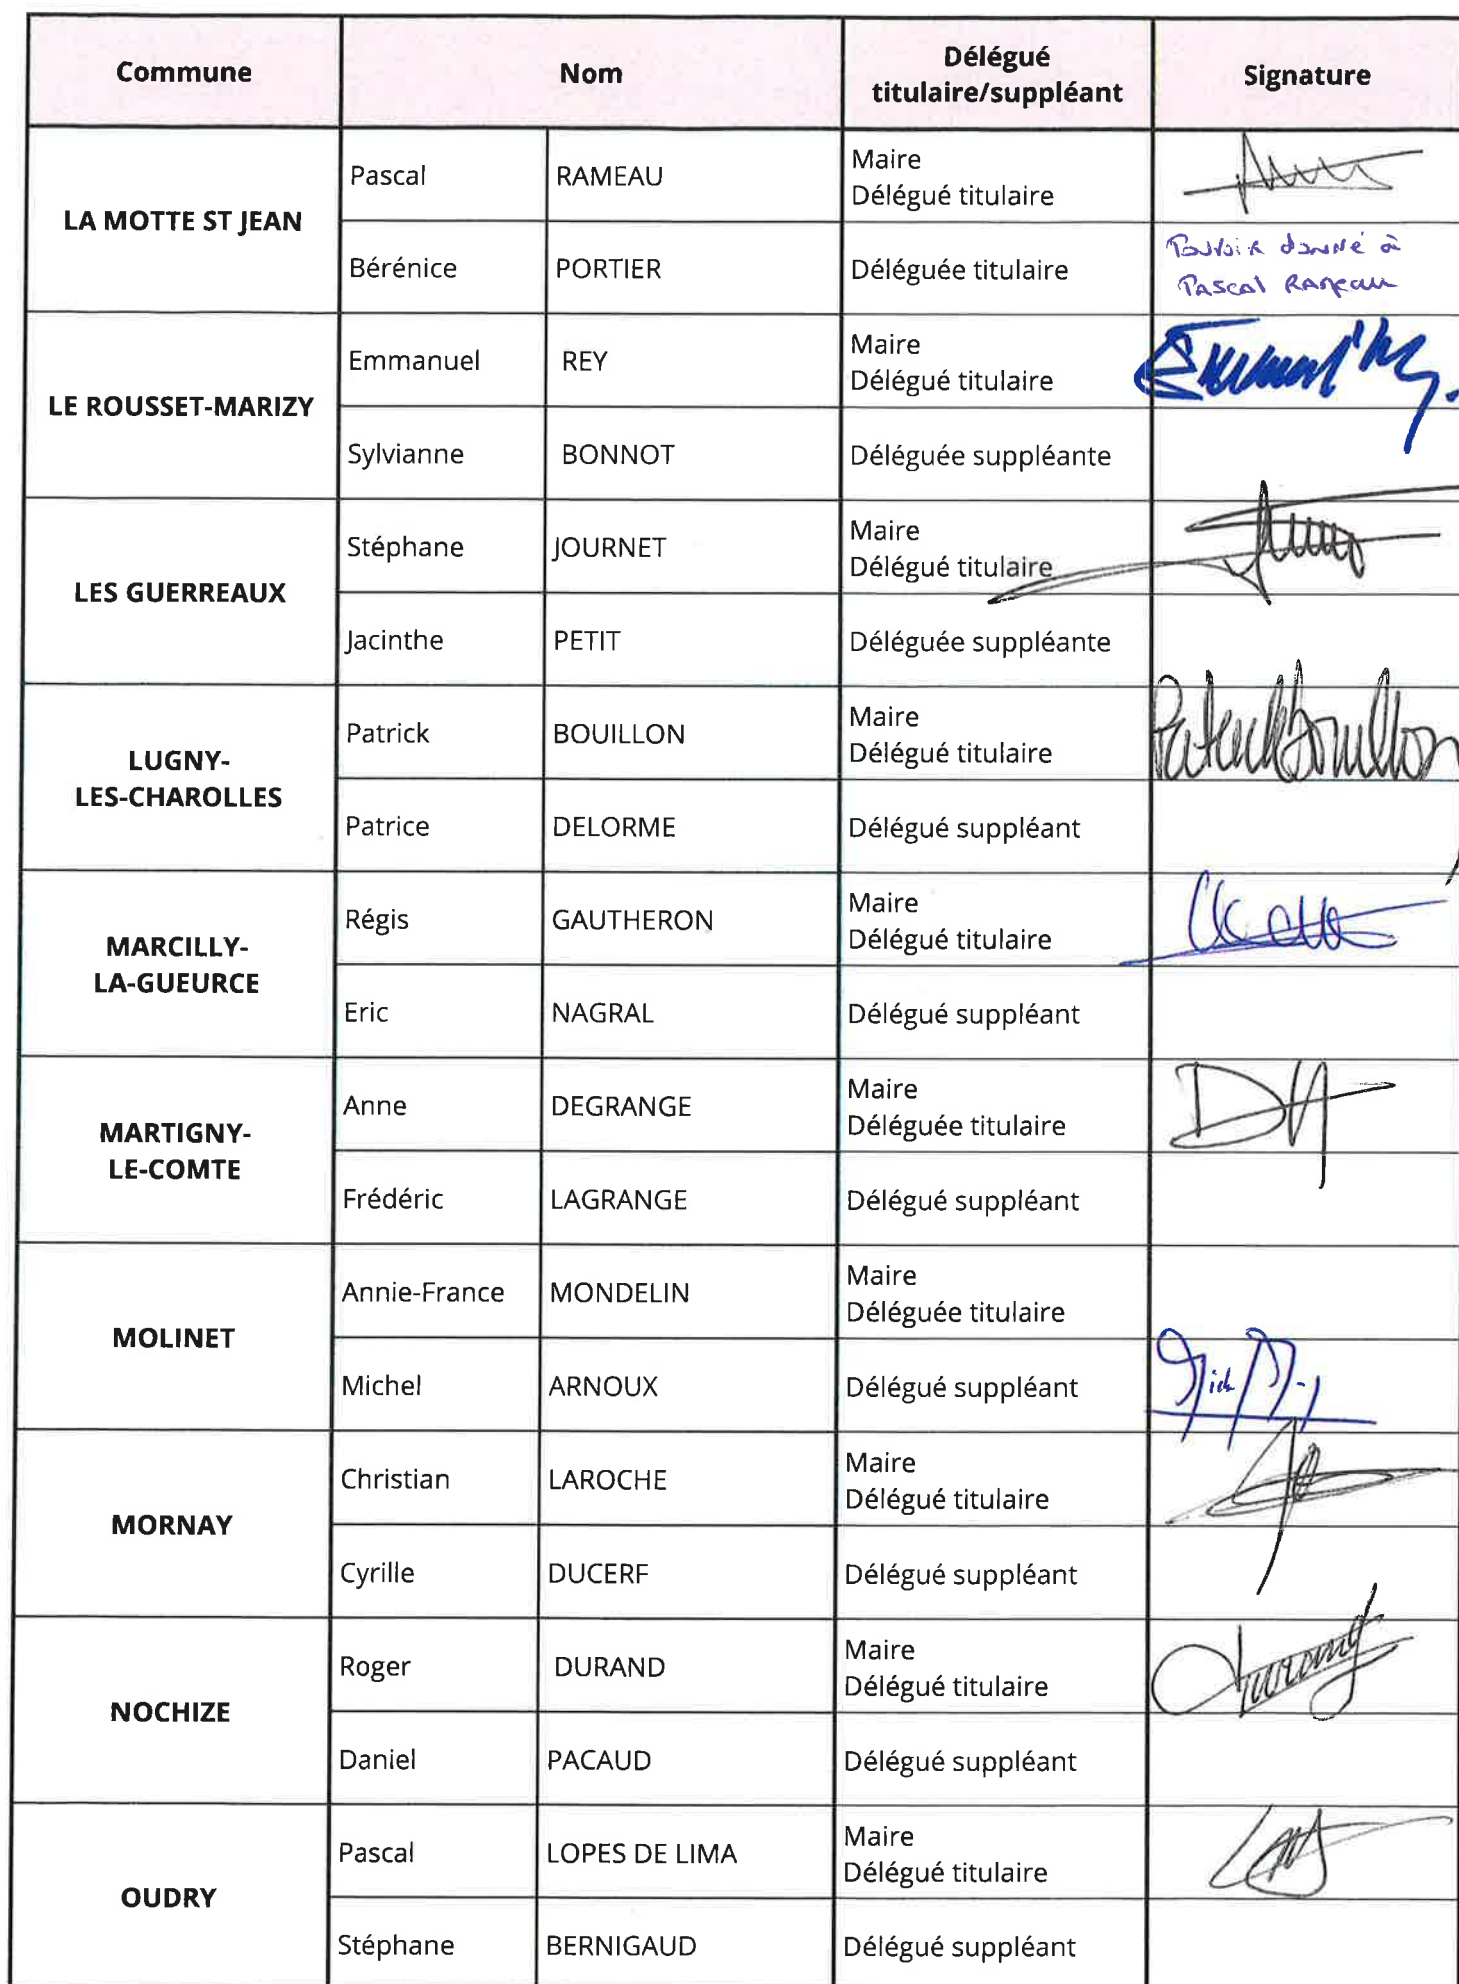 Commune
Nom
Délégué
titulaire/suppléant
Signature
LA MOTTE ST JEAN
Pascal RAMEAU
Maire
Délégué titulaire
Bérénice PORTIER
Déléguée titulaire
Pouvoir donné à
Pascal Rameau
LE ROUSSET-MARIZY
Emmanuel REY
Maire
Délégué titulaire
Sylvianne BONNOT
Déléguée suppléante
LES GUERREAUX
Stéphane JOURNET
Maire
Délégué titulaire
Jacinthe PETIT
Déléguée suppléante
LUGNY-
LES-CHAROLLES
Patrick BOUILLON
Maire
Délégué titulaire
Patrick Bouillon
Patrice DELORME
Délégué suppléant
MARCILLY-
LA-GUEURCE
Régis GAUTHERON
Maire
Délégué titulaire
Eric NAGRAL
Délégué suppléant
MARTIGNY-
LE-COMTE
Anne DEGRANGE
Maire
Déléguée titulaire
Frédéric LAGRANGE
Délégué suppléant
MOLINET
Annie-France MONDELIN
Maire
Déléguée titulaire
Michel ARNOUX
Délégué suppléant
MORNAY
Christian LAROCHE
Maire
Délégué titulaire
Cyrille DUCERF
Délégué suppléant
NOCHIZE
Roger DURAND
Maire
Délégué titulaire
Durand
Daniel PACAUD
Délégué suppléant
OUDRY
Pascal LOPES DE LIMA
Maire
Délégué titulaire
Stéphane BERNIGAUD
Délégué suppléant